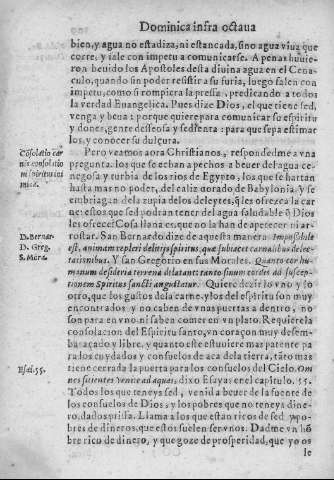 Dominica infra octaua
bien, y agua no estadiza, ni estancada, sino agua viua que
corre, y sale con impetu a comunicarse. A penas huuie-
rõ a beuido los Apostoles desta diuina agua en el Cena-
culo, quando sin poder resistir a su furia, luego salen con
impetu, como si rompiera la pressa, predicando a todos
la verdad Euangelica. Pues dize Dios, el que tiene sed,
venga y beua: porque quiere para comunicar su espiritu
y dones, gente desseosa y sedienta: para que sepa estimar
los, y conocer su dulçura.
Cõsolatio car
nis consolatio
ni spiritus ini
mica.
Pero veamos aora Christianos, respondedme a vna
pregunta. los que se echan a pechos a beuer del agua ce-
nagosa y turbia de los rios de Egypto, los que se hartan
hasta mas no poder, del caliz dorado de Babylonia, y se
embriagan de la zupia de los deleytes, q̃ les ofrezca la car
ne: estos que sed podran tener del agua saludable q̃ Dios
les ofrece? Cosa llana es, que no la han de apetecer ni ar-
D. Bernar.
D. Greg.
S. Mora.
rostar. San Bernardo dize de aquesta manera: Impossibile
est, animam repleri delitijs spiritus, quæ subiacet carnalibus delec-
tationibus. Y san Gregorio en sus Morales. Quanto cor hu-
manum desideria terrena dilatant: tanto sinum cordis ad suscep-
tionem Spiritus sancti angustatur. Quiere dezir lo vno y lo
otro, que los gustos de la carne, y los del espiritu son muy
encontrados y no caben de vnas puertas a dentro, no
son para en vno. ni saben comer en vn plato. Requiere la
consolacion del Espiritu santo, vn coraçon muy desem-
baraçado y libre, y quanto este estuuiere mas patente pa
ra los cuydados y consuelos de aca de la tierra, tãto mas
tiene cerrada la puerta para los consuelos del Cielo. Om
Esai. 55.
nes sitientes venite ad aquas, dixo Esayas en el capitulo. 55.
Todos los que teneys sed, venid a beuer de la fuente de
los consuelos de Dios: y los pobres que no teneys dine-
ro, daos prissa. Llama a los que estan ricos de sed, y po-
bres de dineros, que estos suelen seruirnos. Dadme vn hõ
bre rico de dinero, y que goze de prosperidad, que yo os
le